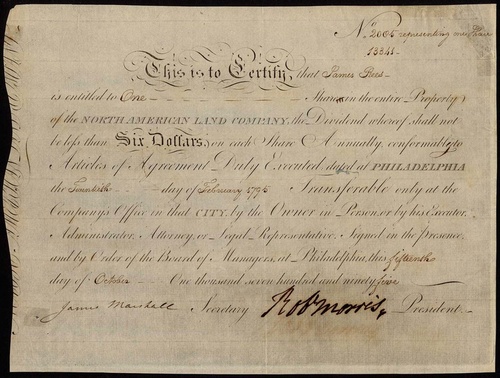 No. 2005 representing one share
13341.
This is to Certify, that James Rees
is entitled to One Share in the entire Property
of the NORTH AMERICAN LAND COMPANY, the Dividend whereof shall not
be less than Six Dollars, on each Share Annually, conformably to
Articles of Agreement Duly Executed, dated at PHILADELPHIA
the Twentieth day of February 1795 Transferable only at the
Company's Office in that CITY, by the Owner in Person, or by his Executor,
Administrator, Attorney, or Legal Representative. Signed in the presence,
and by Order of the Board of Managers, at Philadelphia, this fifteenth
day of October One thousand seven hundred and ninety five
James Marshall Secretary Robt Morris, President.